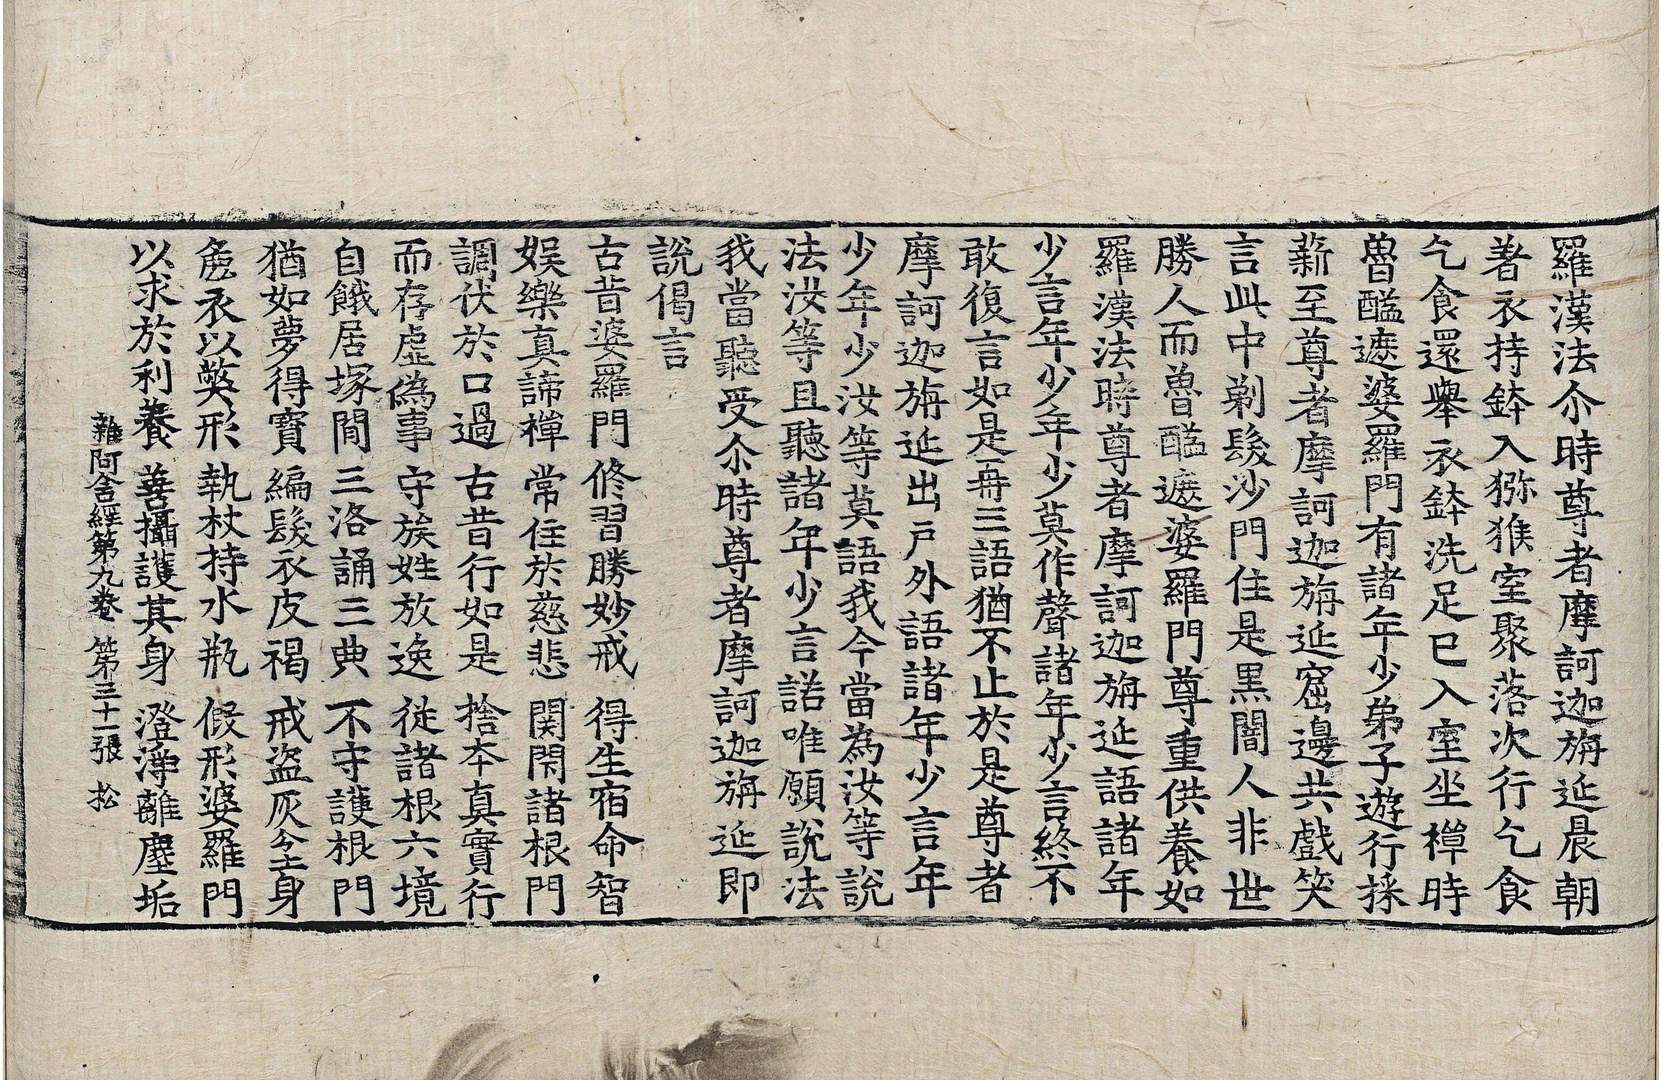 羅漢法尒時尊者摩訶迦旃延晨朝
著衣持鉢入獼猴室聚落次行乞食
乞食還舉衣鉢洗足已入室坐禪時
魯醯遮婆羅門有諸年少弟子遊行採
薪至尊者摩訶迦旃延窟邊共戲笑
言此中剃髮沙門住是黑闇人非世
勝人而魯醯遮婆羅門尊重供養如
羅漢法時尊者摩訶迦旃延語諸年
少言年少年少莫作聲諸年少言終不
敢復言如是再三語猶不止於是尊者
摩訶迦旃延出戶外語諸年少言年
少年少汝等莫語我今當為汝等說
法汝等且聽諸年少言諾唯願說法
我當聽受尒時尊者摩訶迦旃延即
說偈言
古昔婆羅門 修習勝妙戒 得生宿命智
娛樂真諦禪 常住於慈悲 関閇諸根門
調伏於口過 古昔行如是 捨本真實行
而存虛偽事 守族姓放逸 從諸根六境
自餓居塚間 三洛誦三典 不守護根門
猶如夢得寶 編髮衣皮褐 戒盜灰坌身
麁衣以蔽形 執杖持水瓶 假形婆羅門
以求於利養 善攝護其身 澄淨離塵垢
雜阿含經第九卷 第三十一張 松